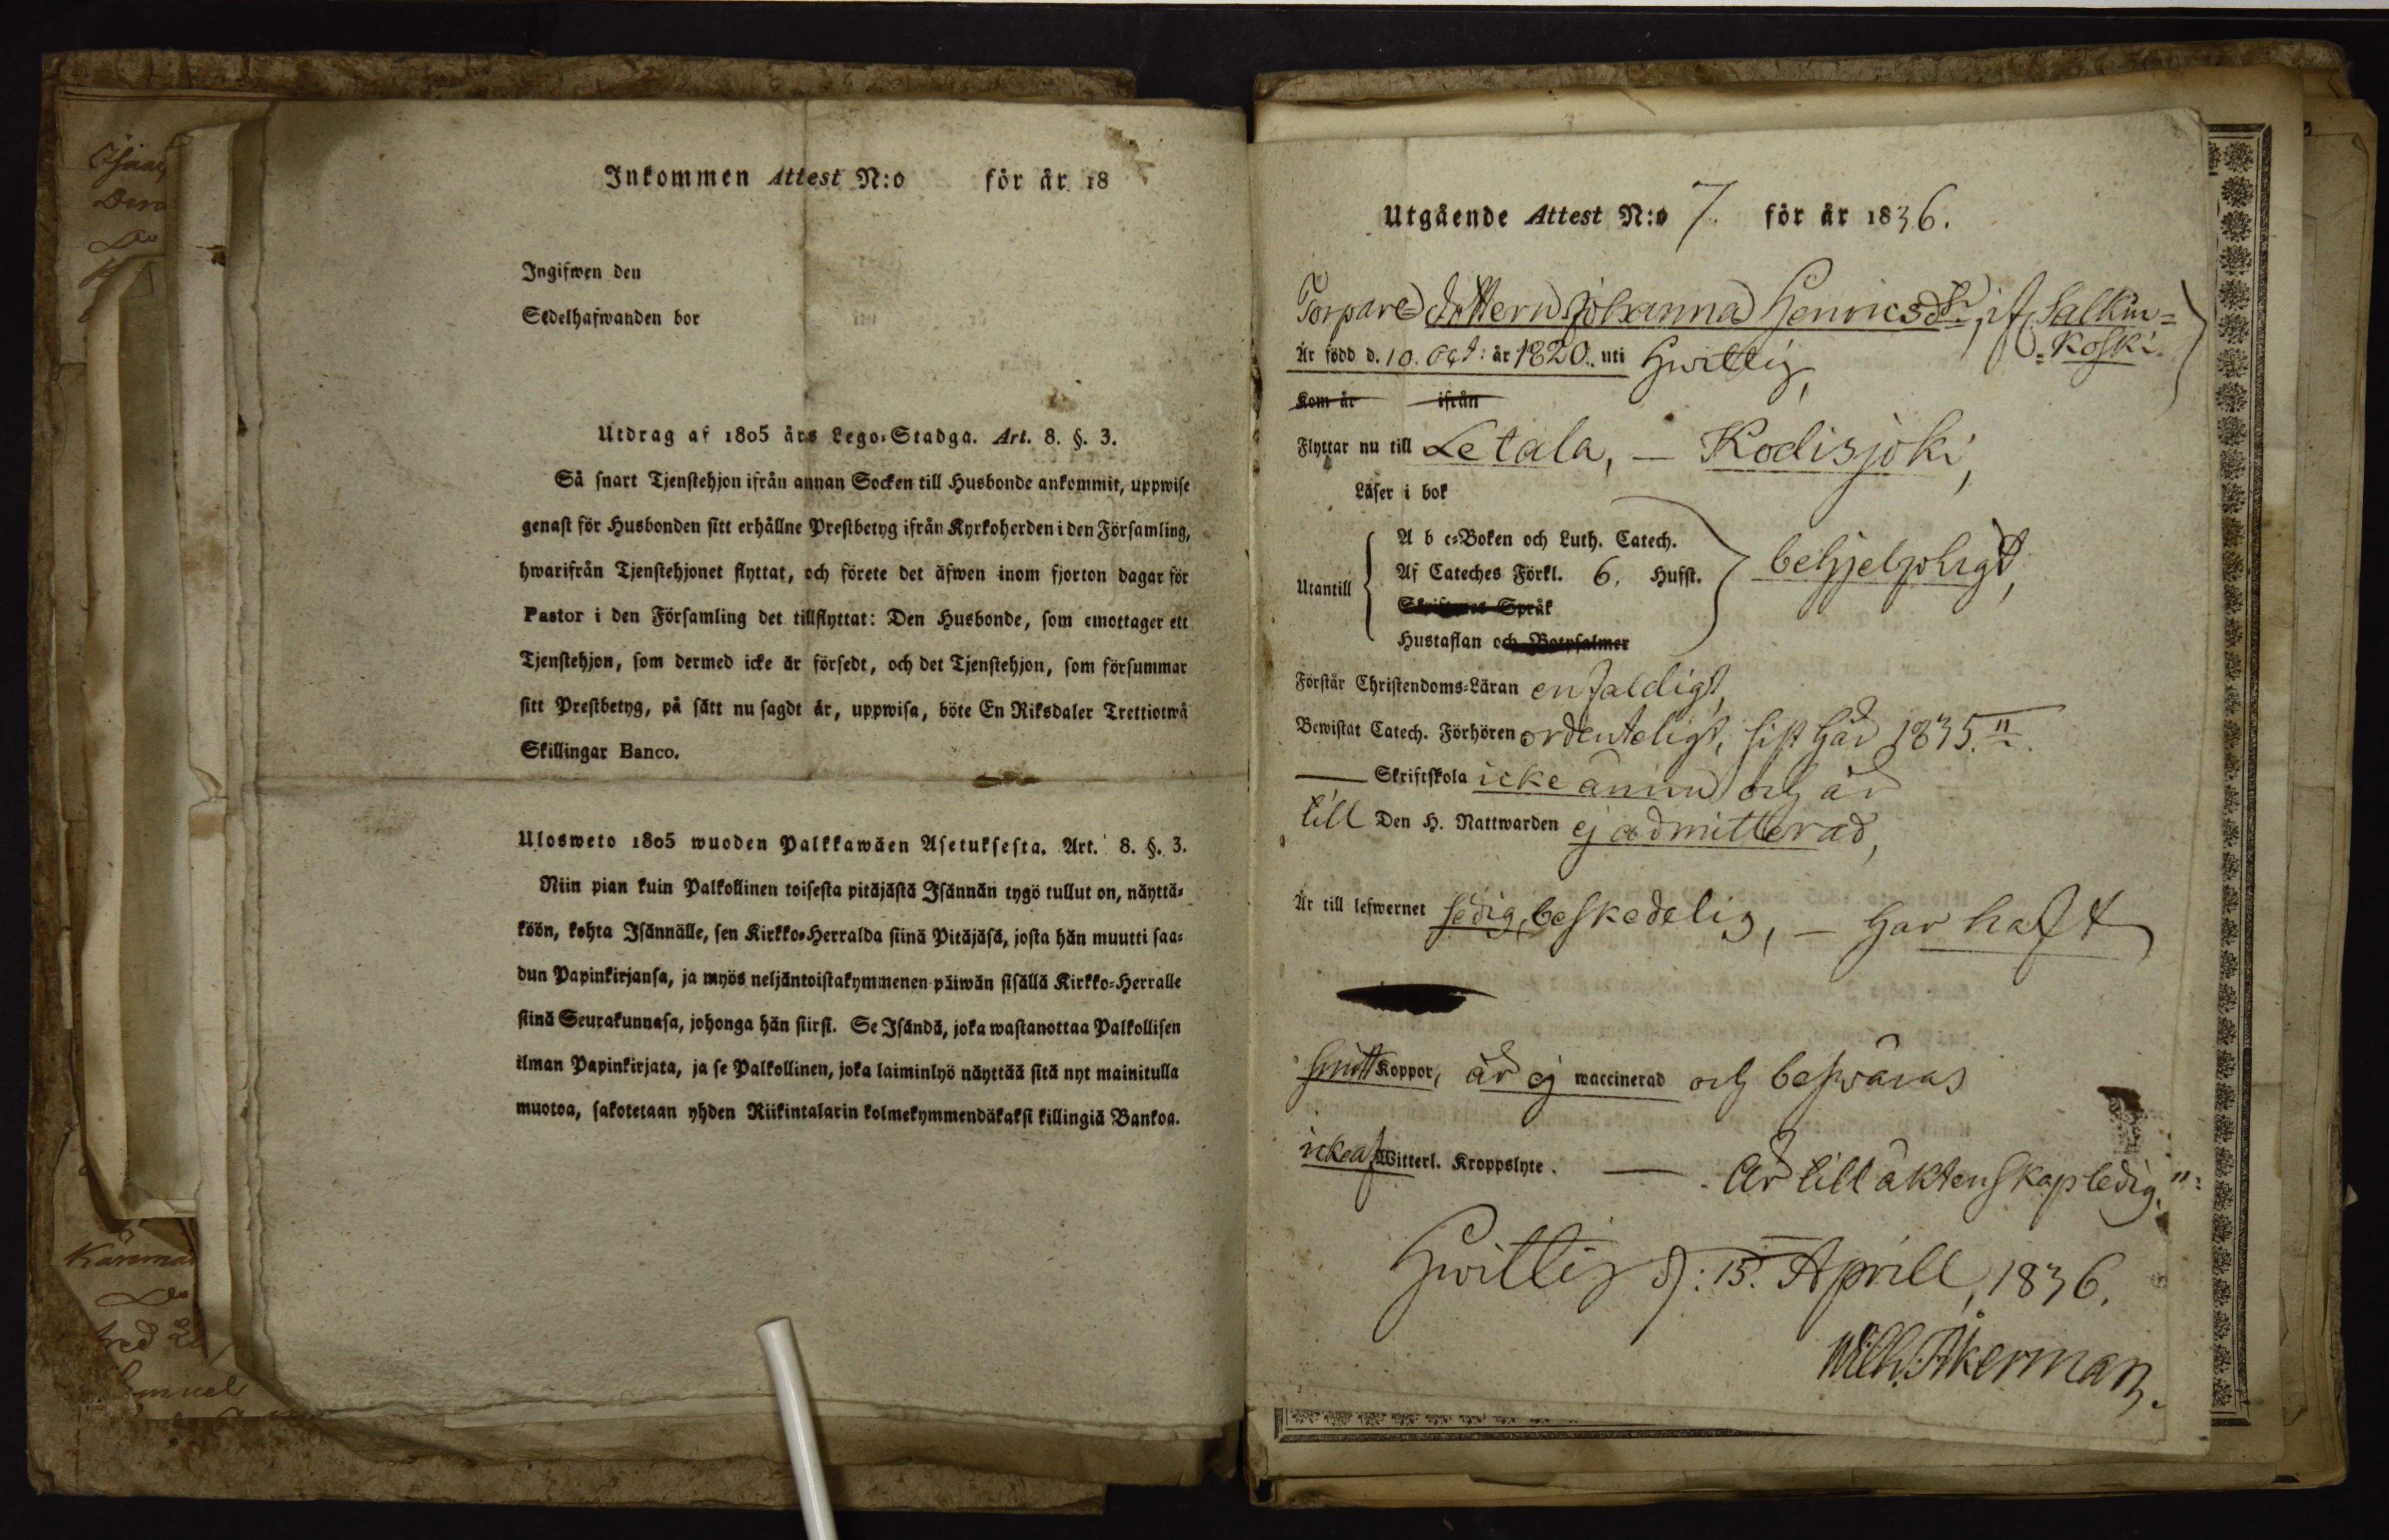 Inkommen Attest N:o för år 18
Ingifwen den
Sedelhafwanden bor
Utdrag af 1805 års Lego-Stadga. Art. 8. §. 3.
Så snart Tjenstehjon ifrån annan Socken till Husbonde ankommit, uppwise
genast för Husbonden sitt erhållne Prestbetyg ifrån Kyrkoherden i den Församling,
hwarifrån Tjenstehjonet flyttat, och förete det äfwen inom fjorton dagar för
Pastor i den Församling det tillflyttat: Den Husbonde, som emottager ett
Tjenstehjon, som dermed icke är försedt, och det Tjenstehjon, som försummar
sitt Prestbetyg, på sätt nu sagdt är, uppwisa, böte En Riksdaler Trettiotwå
Skillingar Banco.
Ulosweto 1805 wuoden Palkkawäen Asetuksesta. Art. 8. §. 3.
Niin pian kuin Palkollinen toisesta pitäjästä Isännän tygö tullut on, näyttä-
köön, kohta Isännälle, sen Kirkko-Herralda siinä Pitäjäsä, josta hän muutti saa-
dun Papinkirjansa, ja myös neljäntoistakymmenen päiwän sisällä Kirkko-Herralle
siinä Seurakunnasa, johonga hän siirsi. Se Isändä, joka wastanottaa Palkollisen
ilman Papinkirjata, ja se Palkollinen, joka laiminlyö näyttää sitä nyt mainitulla
muotoa, sakotetaan yhden Riikintalarin kolmekymmendäkaksi killingiä Bankoa.
Utgående Attest N:o 7. för år 1836.
Torpare dottern Johanna Henricsdr, if. Salkin=
=koski.
Är född d. 10. Oct: år 1820. uti Hwittis,
Kom år ifrån
Flyttar nu till Letala, — Kodisjoki,
Läser i bok
A b c-Boken och Luth. Catech.
Utantill Af Cateches Förkl. 6. Hufst. behjelpligt,
Skriftenes Språk
Hustaflan och Botpsalmer
Förstår Christendoms-Läran enfaldigt,
Bewistat Catech. Förhören ordenteligt, sist här 1835.
— Skriftskola icke ännu och är
till Den H. Nattwarden ej admitterad,
Är till lefwernet sedig, beskedelig, — har haft
Smittkoppor, är ej waccinerad och beswäras
icke af Witterl. Kroppslyte. — Är till äktenskap ledig.
Hwittis d: 15. Aprill, 1836.
Wilh. Åkerman.